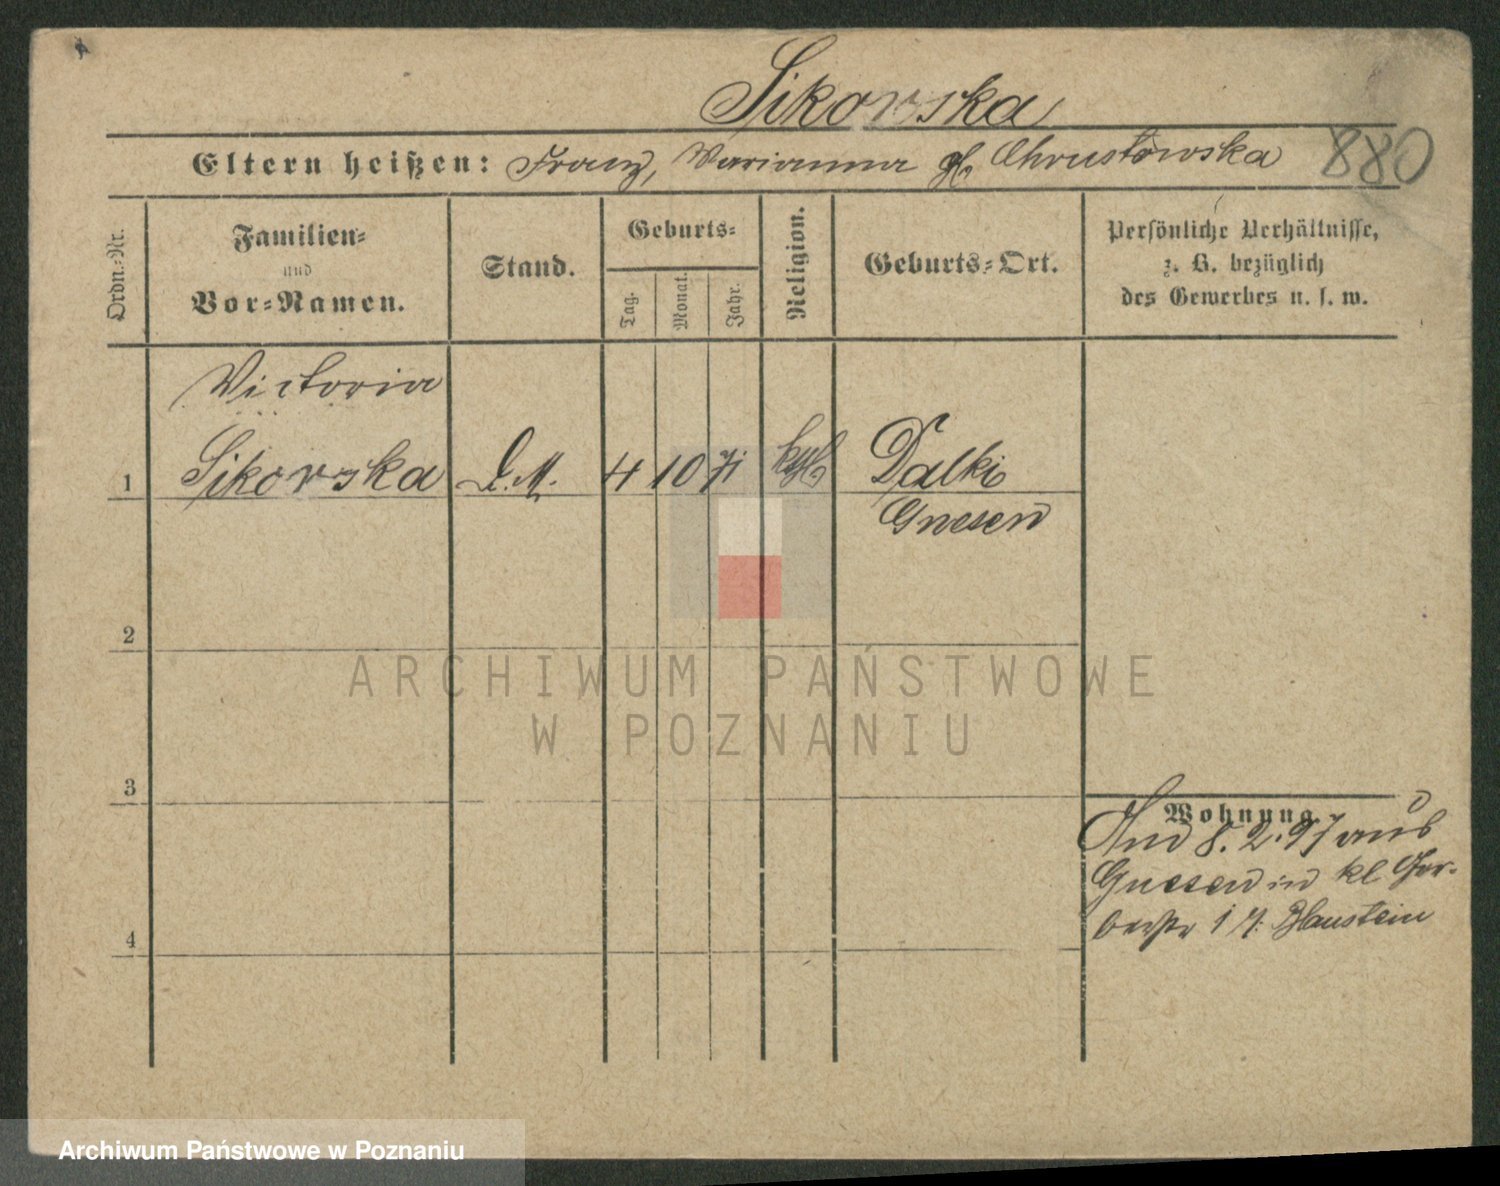 Sikorska
Eltern heißen: Franz, Marianna gb Chrustowska 880
Ordn.-Nr.
Familien-
und
Vor-Namen.
Stand.
Geburts-
Tag.
Monat.
Jahr.
Religion.
Geburts-Ort.
Persönliche Verhältnisse,
z. B. bezüglich
des Gewerbes u. s. w.
Victoria
1 Sikorska D.M. 4 10 71 kath Dalki
Gnesen
2
ARCHIWUM PAŃSTWOWE
W POZNANIU
3
Wohnung
8. 2. 97 aus
Gnesen in kl Ger-
berstr 17. Blaustein
4
Archiwum Państwowe w Poznaniu